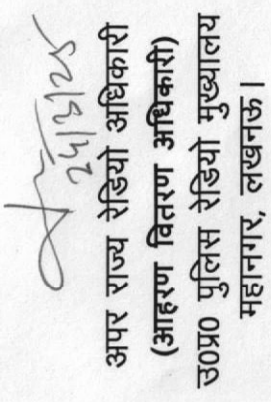 24/3/25
अपर राज्य रेडियो अधिकारी
(आहरण वितरण अधिकारी)
उ0प्र0 पुलिस रेडियो मुख्यालय
महानगर, लखनऊ।